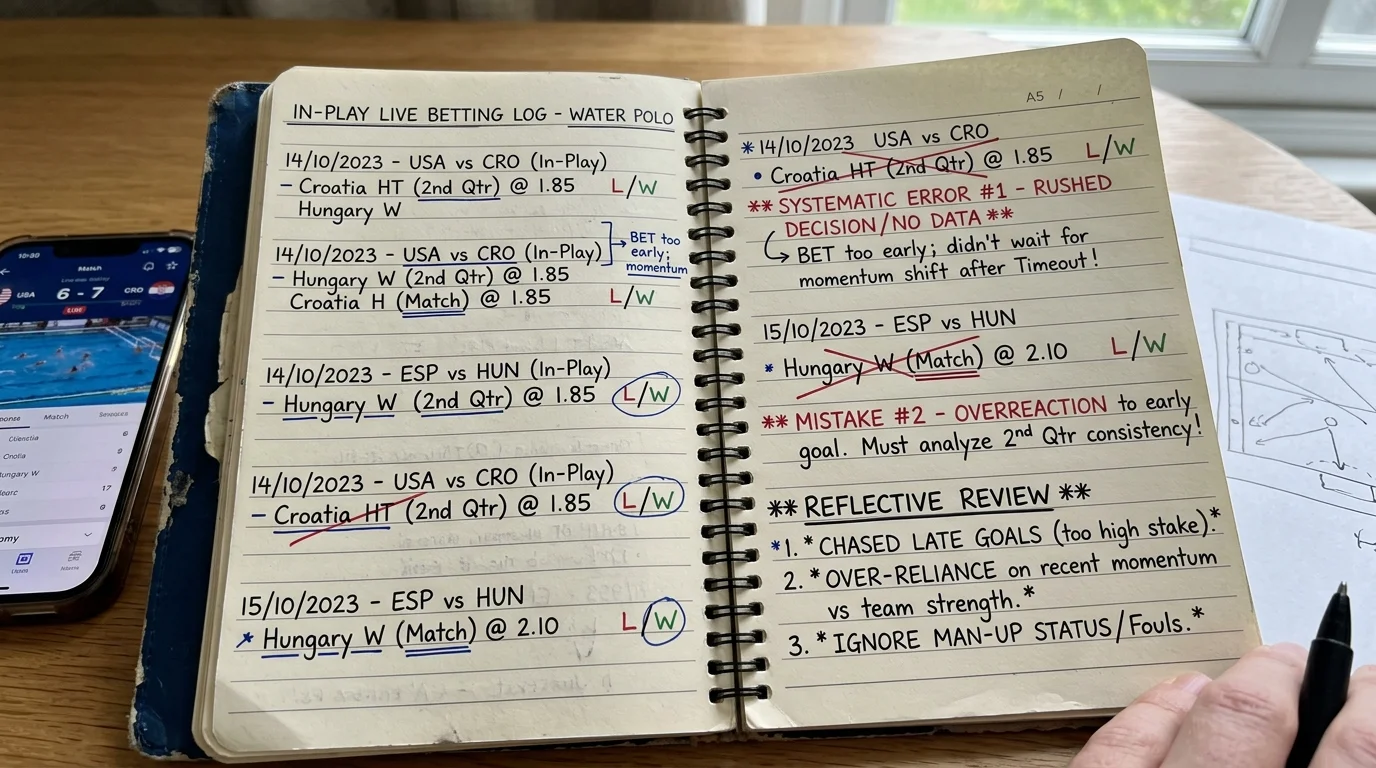 IN-PLAY LIVE BETTING LOG - WATER POLO
14/10/2023 - USA vs CRO (In-Play)
- Croatia HT (2nd Qtr) @ 1.85 L/W
Hungary W
14/10/2023 - USA vs CRO (In-Play)
- Hungary W (2nd Qtr) @ 1.85
Croatia H (Match) @ 1.85 L/W
BET too
early;
momentum
14/10/2023 - ESP vs HUN (In-Play)
- Hungary W (2nd Qtr) @ 1.85 L/W
14/10/2023 - USA vs CRO (In-Play)
- Croatia HT (2nd Qtr) @ 1.85 L/W
15/10/2023 - ESP vs HUN
* Hungary W (Match) @ 2.10 L/W
A5 / /
* 14/10/2023 USA vs CRO
• Croatia HT (2nd Qtr) @ 1.85 L/W
** SYSTEMATIC ERROR #1 - RUSHED
DECISION/NO DATA **
BET too early; didn't wait for
momentum shift after Timeout!
15/10/2023 - ESP vs HUN
* Hungary W (Match) @ 2.10 L/W
** MISTAKE #2 - OVERREACTION to early
goal. Must analyze 2nd Qtr consistency!
** REFLECTIVE REVIEW **
*1. * CHASED LATE GOALS (too high stake).*
2. * OVER-RELIANCE on recent momentum
vs team strength.*
3. * IGNORE MAN-UP STATUS/Fouls.*
10:30
Match
USA 6 - 7 CRO
LIVE
Match
Hungary W
17